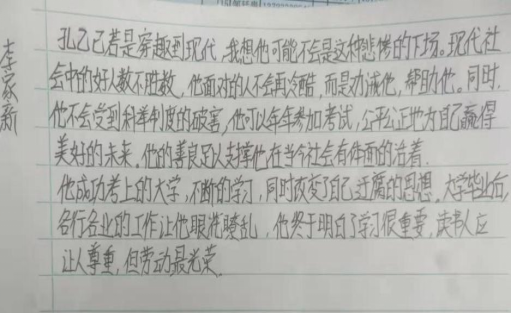 李家新
孔乙己若是穿越到现代，我想他可能不会是这种悲惨的下场。现代社
会中的好人数不胜数，他面对的人不会再冷酷，而是劝诫他，帮助他。同时，
他不会受到科举制度的破害，他可以年年参加考试，公平公正地为自己赢得
美好的未来。他的善良足以支撑他在当今社会有体面的活着.
他成功考上的大学，不断的学习，同时改变了自己迂腐的思想。大学毕业后，
各行各业的工作让他眼花瞭乱，他终于明白了学习很重要，读书人应
让人尊重，但劳动最光荣.